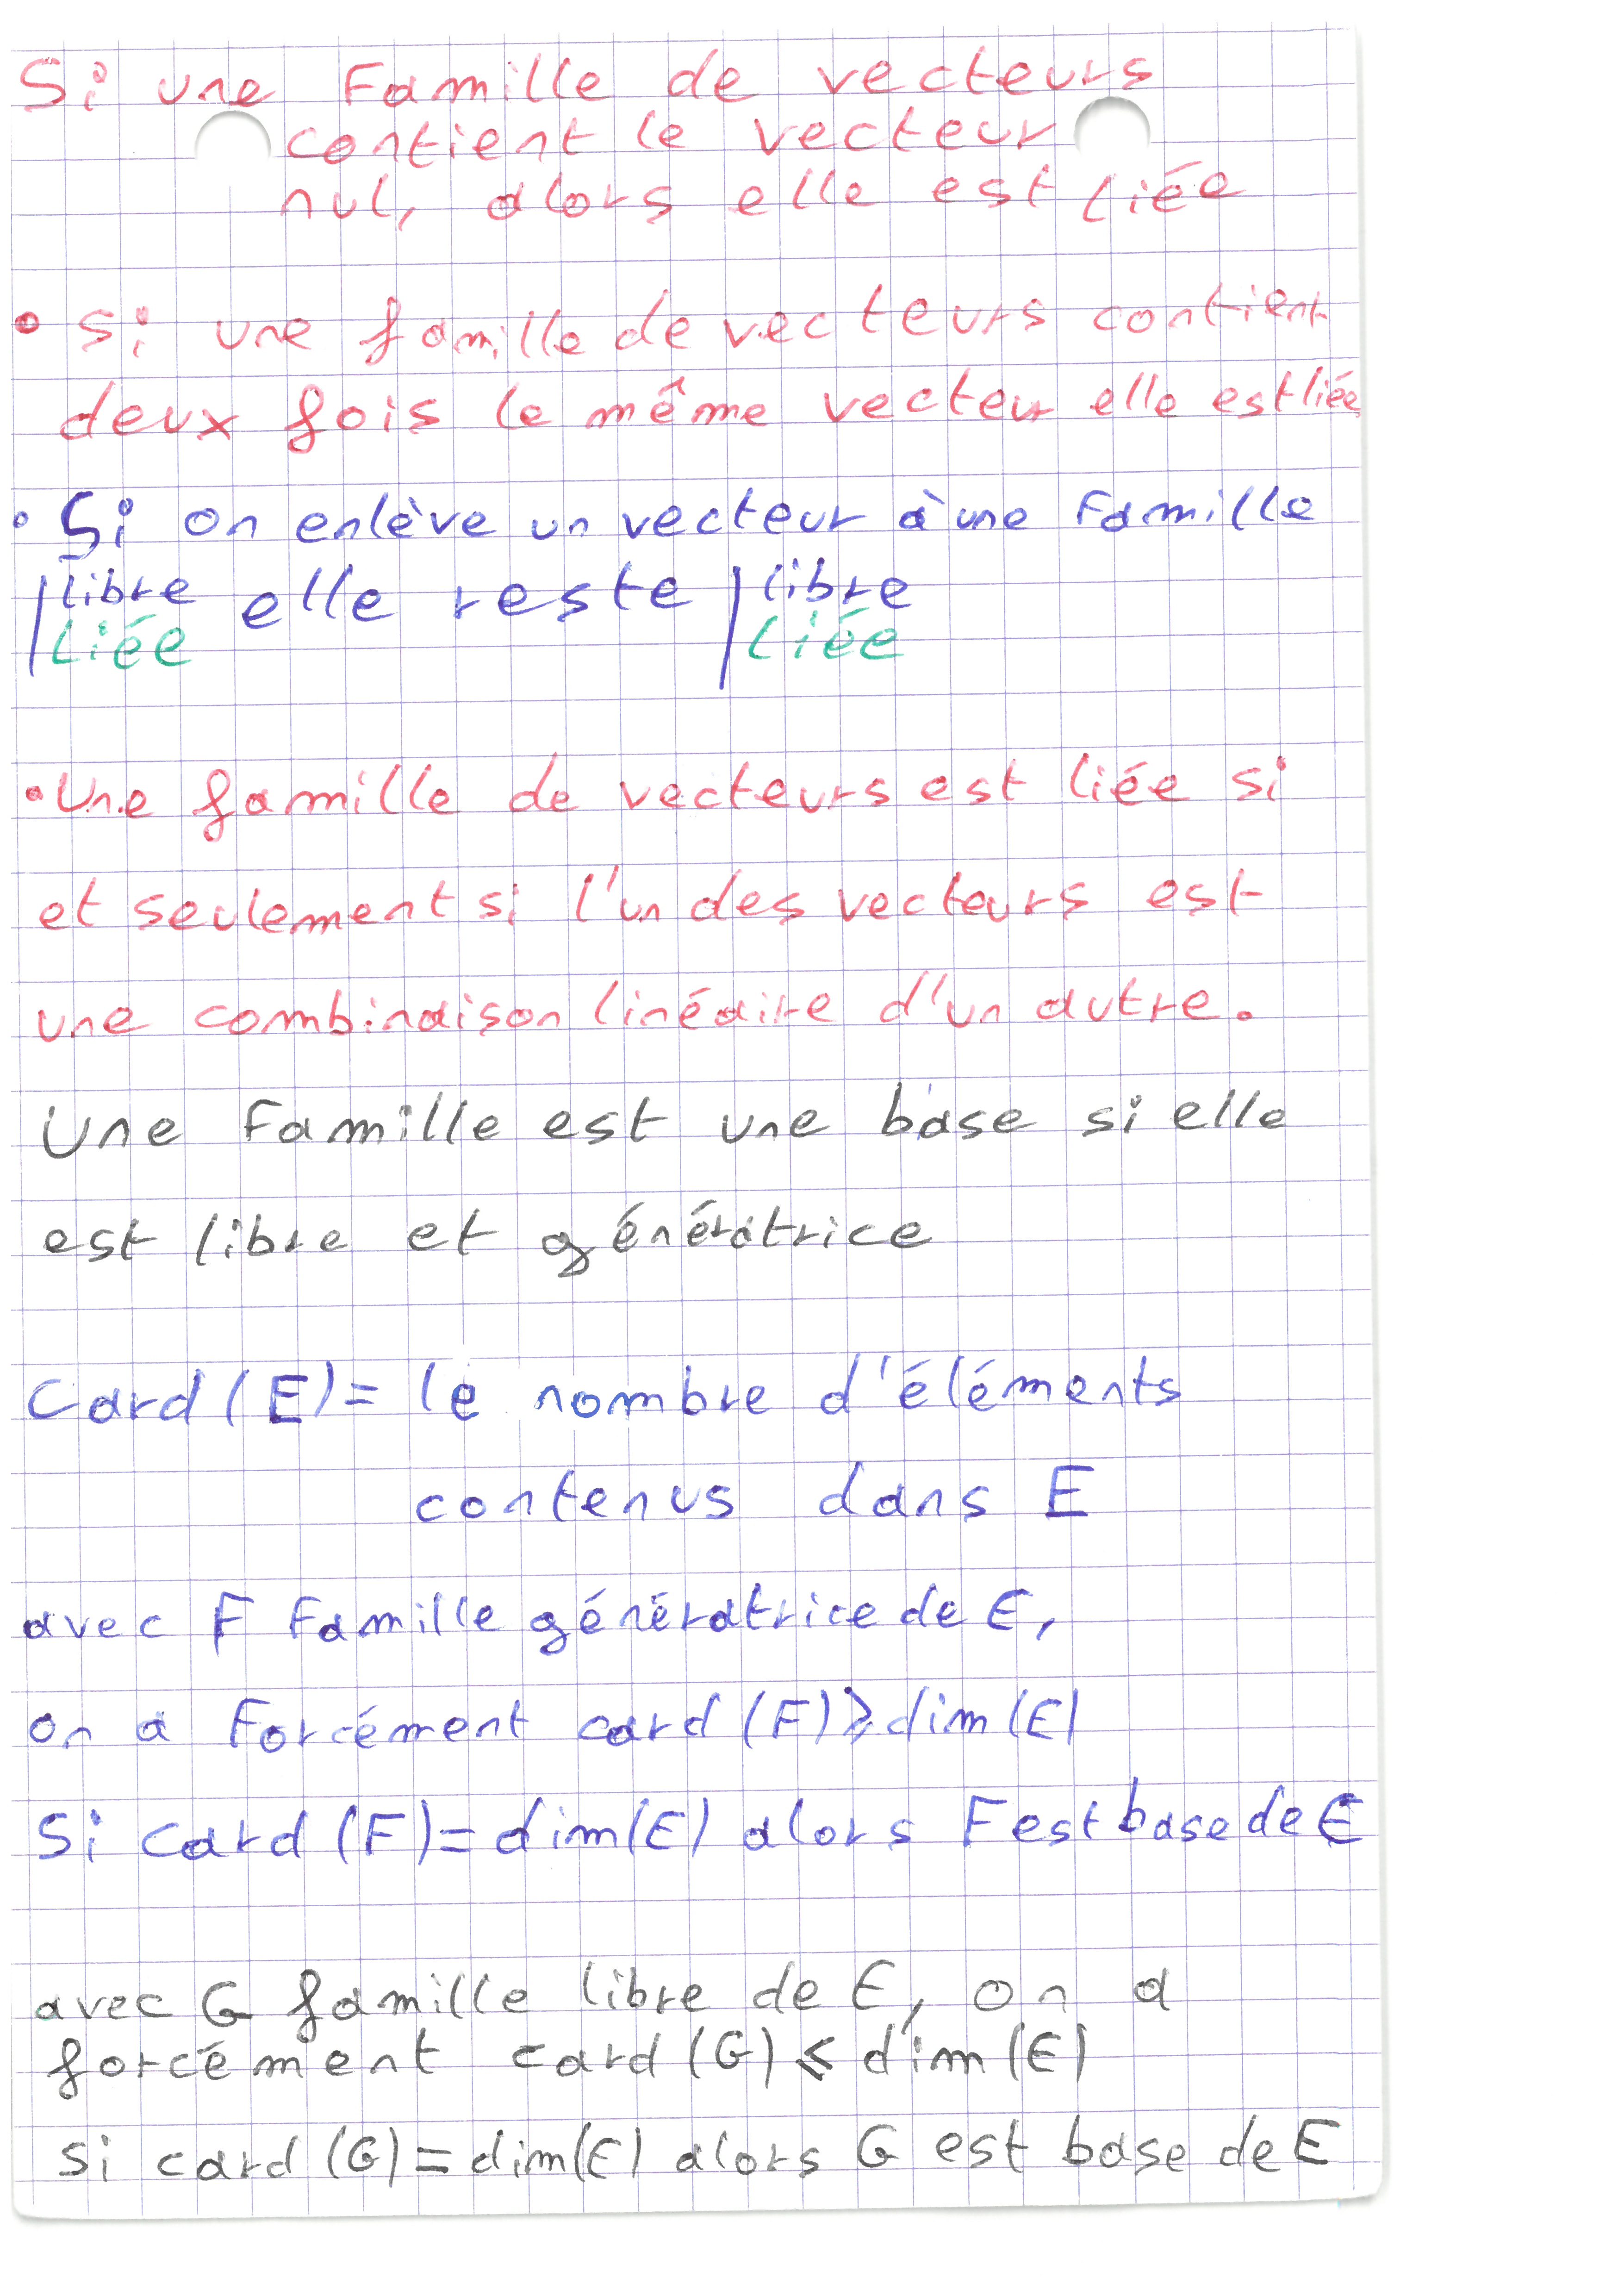 Si une Famille de vecteurs
contient le vecteur
nul, alors elle est liée
• Si une famille de vecteurs contient
deux fois le même vecteur elle est liée
• Si on enlève un vecteur à une Famille
| libre elle reste | libre
| Liée | Liée
• Une famille de vecteurs est liée si
et seulement si l'un des vecteurs est
une combinaison linéaire d'un autre.
Une Famille est une base si elle
est libre et génératrice
Card (E) = le nombre d'éléments
contenus dans E
avec F Famille génératrice de E,
on a Forcément card (F) ⩾ dim (E)
Si card (F) = dim (E) alors F est base de E
avec G famille libre de E, on a
forcément card (G) ⩽ dim (E)
si card (G) = dim (E) alors G est base de E